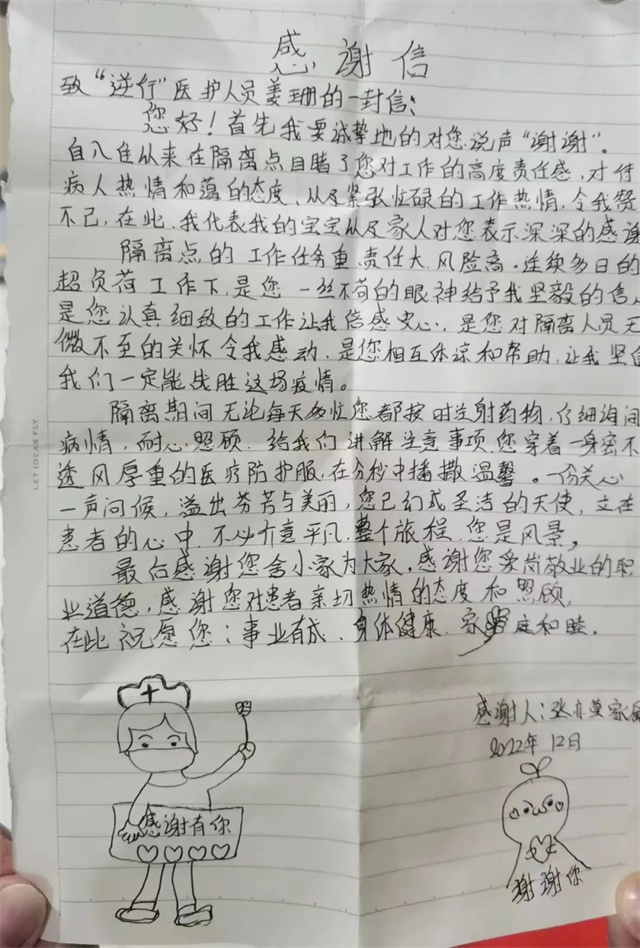 感谢信
致“逆行”医护人员姜珊的一封信：
您好！首先我要诚挚地的对您说声“谢谢”。
自入住从来在隔离点目睹了您对工作的高度责任感，对待
病人热情和蔼的态度、从及紧张忙碌的工作热情，令我赞
不已，在此，我代表我的宝宝从及家人对您表示深深的感谢
隔离点的工作任务重、责任大、风险高。连续多日的
超负荷工作下，是您一丝不苟的眼神给予我坚毅的信
是您认真细致的工作让我倍感安心，是您对隔离人员无
微不至的关怀令我感动，是您相互体谅和帮助，让我坚信
我们一定能战胜这场疫情。
隔离期间无论每天多忙您都按时注射药物，仔细询问
病情，耐心照顾，给我们讲解注意事项，您穿着一身密不
透风厚重的医疗防护服，在分秒中播撒温馨。一份关心
一声问候，溢出芬芳与美丽，您已幻成圣洁的天使，立在
患者的心中，不必介意平凡，整个旅程，您是风景，
最后感谢您舍小家为大家，感谢您爱岗敬业的职
业道德，感谢您对患者亲切热情的态度和照顾，
在此祝愿您：事业有成、身体健康、家庭和睦.
感谢人：张亦
2022年12月
感谢有你
谢谢你
LET IDEAS FLY